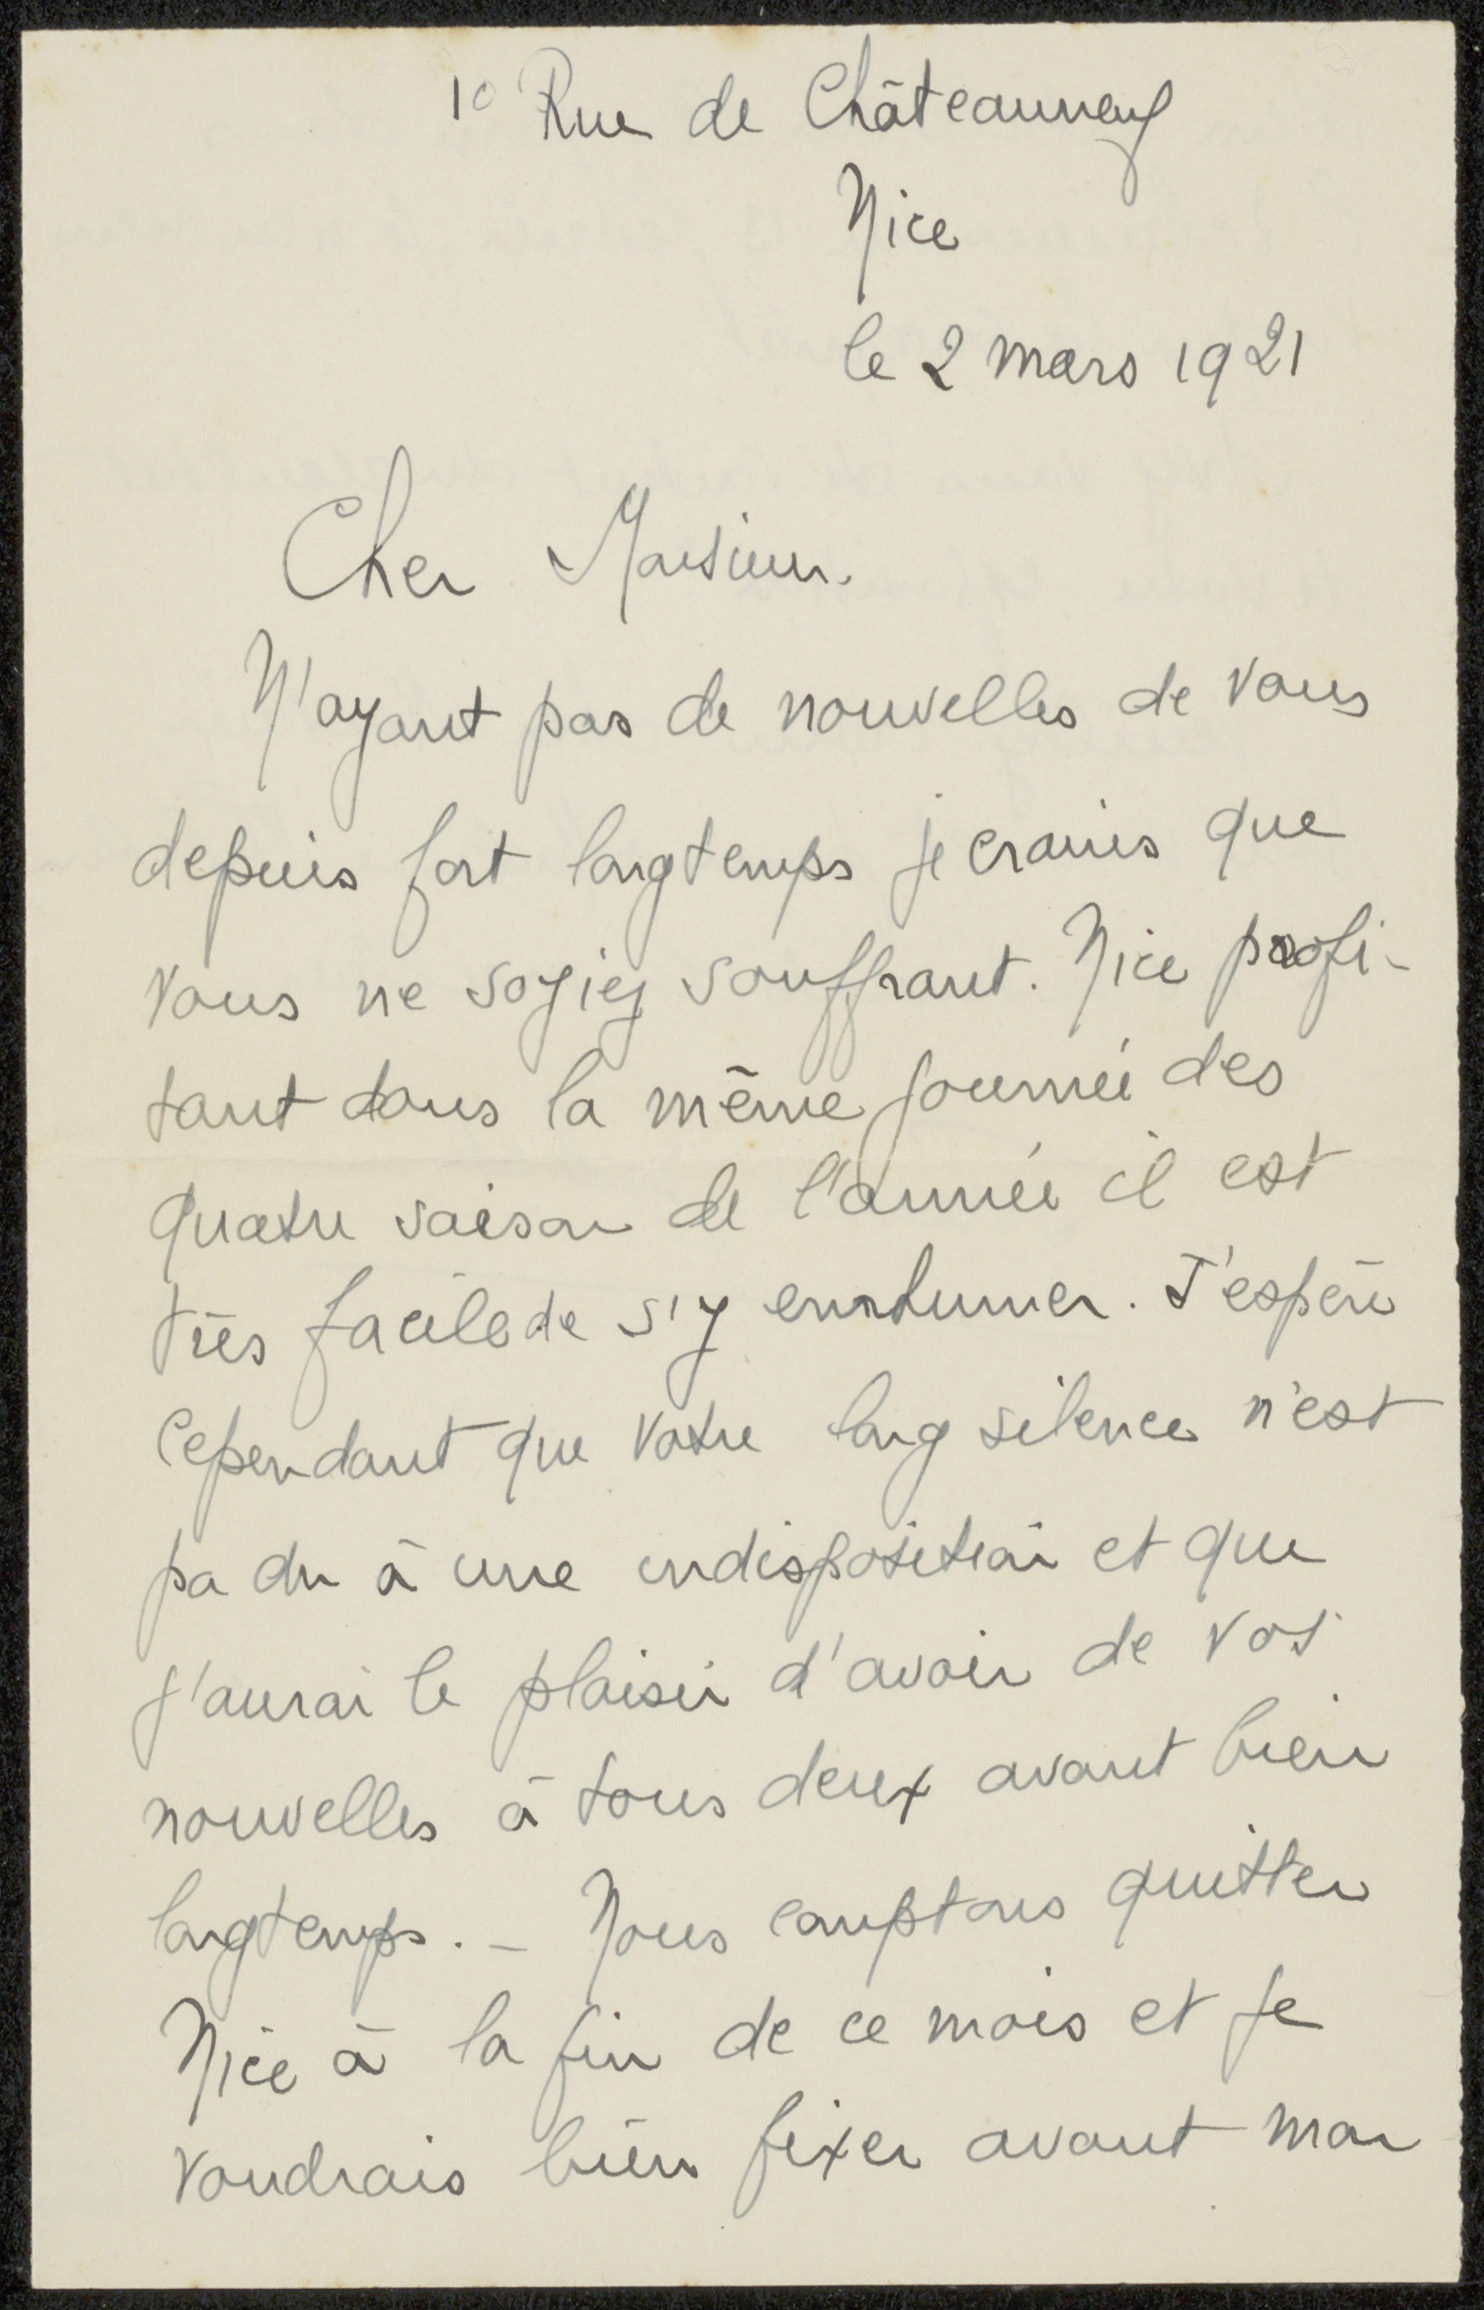 10 Rue de Châteauneuf
Nice
le 2 mars 1921
Cher Monsieur.
N'ayant pas de nouvelles de vous
depuis fort longtemps je crains que
vous ne soyiez souffrant. Nice profi-
tant dans la même journée des
quatre saison de l'année il est
très facile de s'y enrhumer. J'espère
cependant que votre long silence n'est
pa du à une indisposition et que
j'aurai le plaisir d'avoir de vos
nouvelles à tous deux avant bien
longtemps. - Nous comptons quitter
Nice à la fin de ce mois et je
voudrais bien fixer avant mon